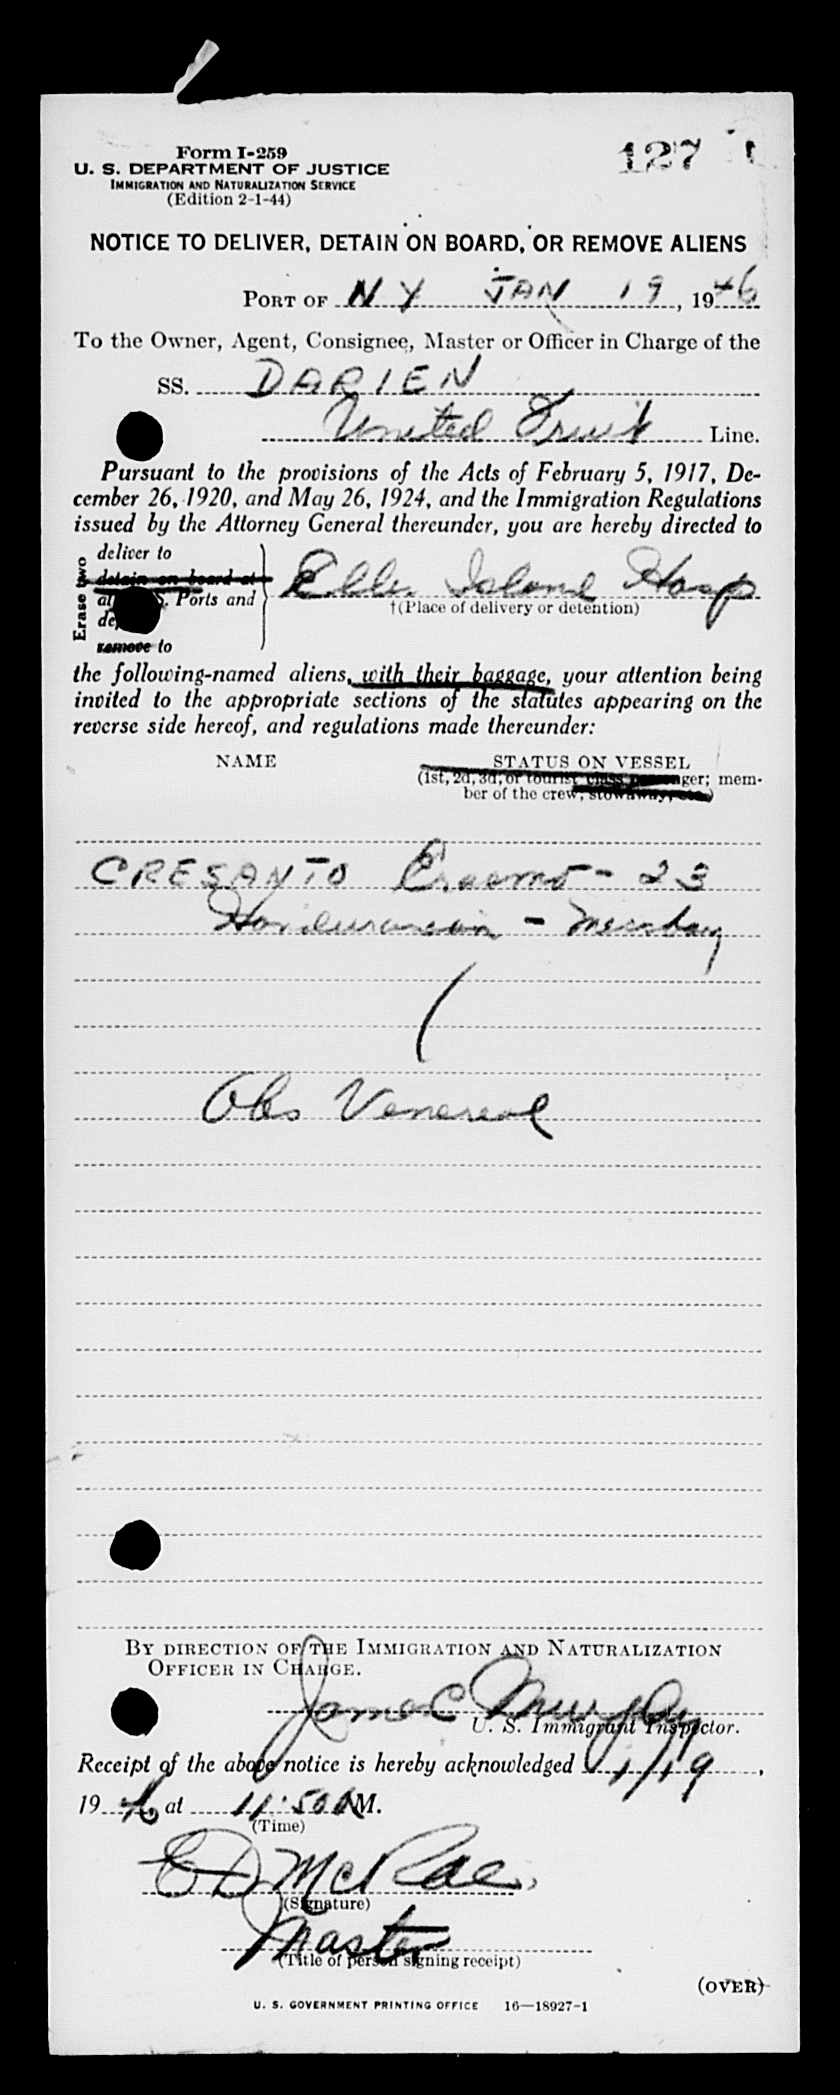 Form I-259
U. S. DEPARTMENT OF JUSTICE
IMMIGRATION AND NATURALIZATION SERVICE
(Edition 2-1-44)
127
NOTICE TO DELIVER, DETAIN ON BOARD, OR REMOVE ALIENS
PORT OF N Y JAN 19, 1946
To the Owner, Agent, Consignee, Master or Officer in Charge of the
SS. DARIEN
United Fruit Line.
Pursuant to the provisions of the Acts of February 5, 1917, De-
cember 26, 1920, and May 26, 1924, and the Immigration Regulations
issued by the Attorney General thereunder, you are hereby directed to
Erase two
deliver to
detain on board at
S. Ports and
remove to
Ellis Island Hosp
†(Place of delivery or detention)
the following-named aliens, with their baggage, your attention being
invited to the appropriate sections of the statutes appearing on the
reverse side hereof, and regulations made thereunder:
NAME STATUS ON VESSEL
(1st, 2d, 3d, or tourist class passenger; mem-
ber of the crew, stowaway, etc.)
CRESANTO - 23
Honduranean - Messboy
Obs Venereal
BY DIRECTION OF THE IMMIGRATION AND NATURALIZATION
OFFICER IN CHARGE.
James Murphy
U. S. Immigrant Inspector.
Receipt of the above notice is hereby acknowledged 1/19,
1946, at 11:50 AM.
(Time)
McRae
(Signature)
Master
(Title of person signing receipt)
(OVER)
U. S. GOVERNMENT PRINTING OFFICE 16—18927-1